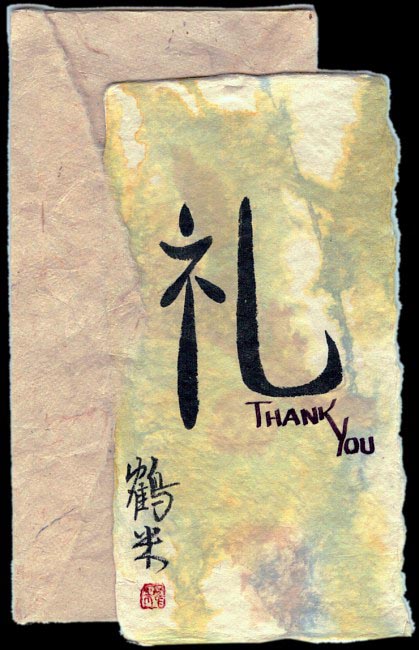 礼
THANK
YOU
鶴米